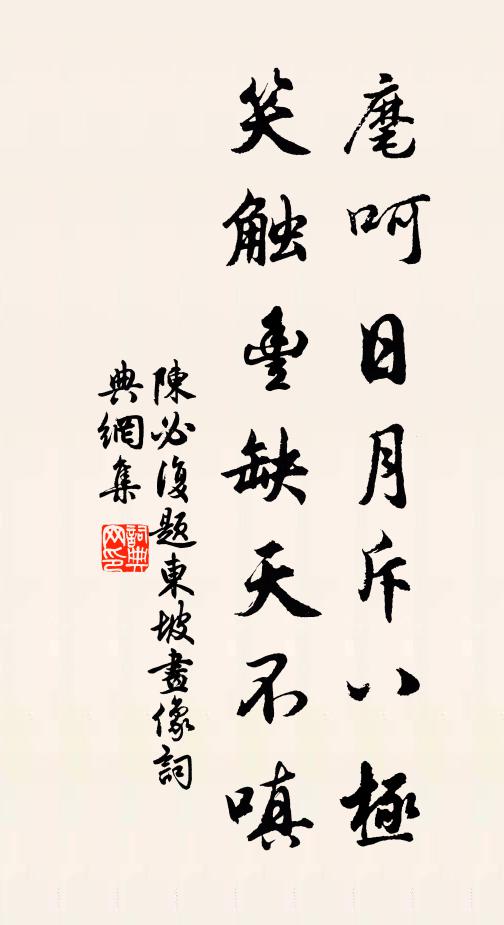 麾呵日月斥八極
笑触豊缺天不嗔
陳必復題東坡畫像詞
典網集
詞典
网印